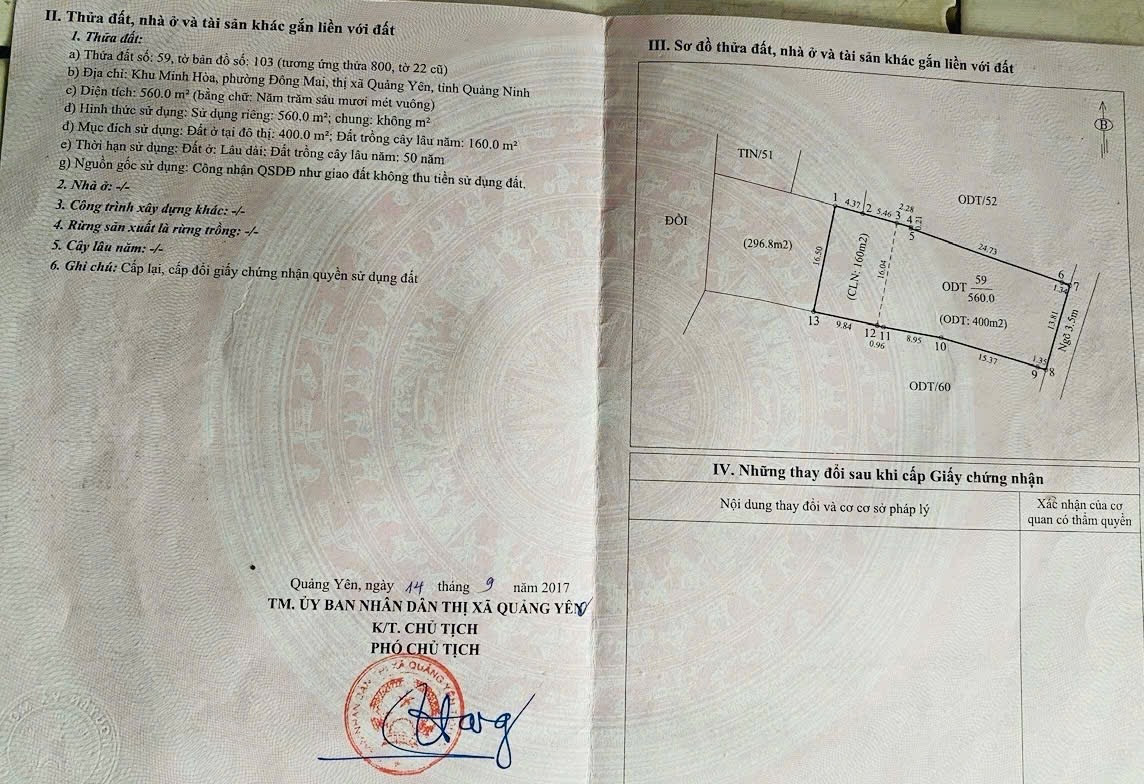 II. Thửa đất, nhà ở và tài sản khác gắn liền với đất
1. Thửa đất:
a) Thửa đất số: 59, tờ bản đồ số: 103 (tương ứng thửa 800, tờ 22 cũ)
b) Địa chỉ: Khu Minh Hòa, phường Đông Mai, thị xã Quảng Yên, tỉnh Quảng Ninh
c) Diện tích: 560.0 m² (bằng chữ: Năm trăm sáu mươi mét vuông)
d) Hình thức sử dụng: Sử dụng riêng: 560.0 m²; chung: không m²
đ) Mục đích sử dụng: Đất ở tại đô thị: 400.0 m²; Đất trồng cây lâu năm: 160.0 m²
e) Thời hạn sử dụng: Đất ở: Lâu dài; Đất trồng cây lâu năm: 50 năm
g) Nguồn gốc sử dụng: Công nhận QSDĐ như giao đất không thu tiền sử dụng đất.
2. Nhà ở: -/-
3. Công trình xây dựng khác: -/-
4. Rừng sản xuất là rừng trồng: -/-
5. Cây lâu năm: -/-
6. Ghi chú: Cấp lại, cấp đổi giấy chứng nhận quyền sử dụng đất
Quảng Yên, ngày 14 tháng 9 năm 2017
TM. ỦY BAN NHÂN DÂN THỊ XÃ QUẢNG YÊN
K/T. CHỦ TỊCH
PHÓ CHỦ TỊCH
III. Sơ đồ thửa đất, nhà ở và tài sản khác gắn liền với đất
B
TIN/51
ODT/52
ĐỒI
1 4.37 2 5.46 3 2.28 4
5
24.73
6
1.34 7
(296.8m2)
16.50
(CLN: 160m2)
16.04
ODT 59
560.0
(ODT: 400m2)
13.81
Ngõ 3.5m
13 9.84 12 11 8.95 10
0.96
15.37
1.35
9 8
ODT/60
IV. Những thay đổi sau khi cấp Giấy chứng nhận
Nội dung thay đổi và cơ cơ sở pháp lý
Xác nhận của cơ
quan có thẩm quyền